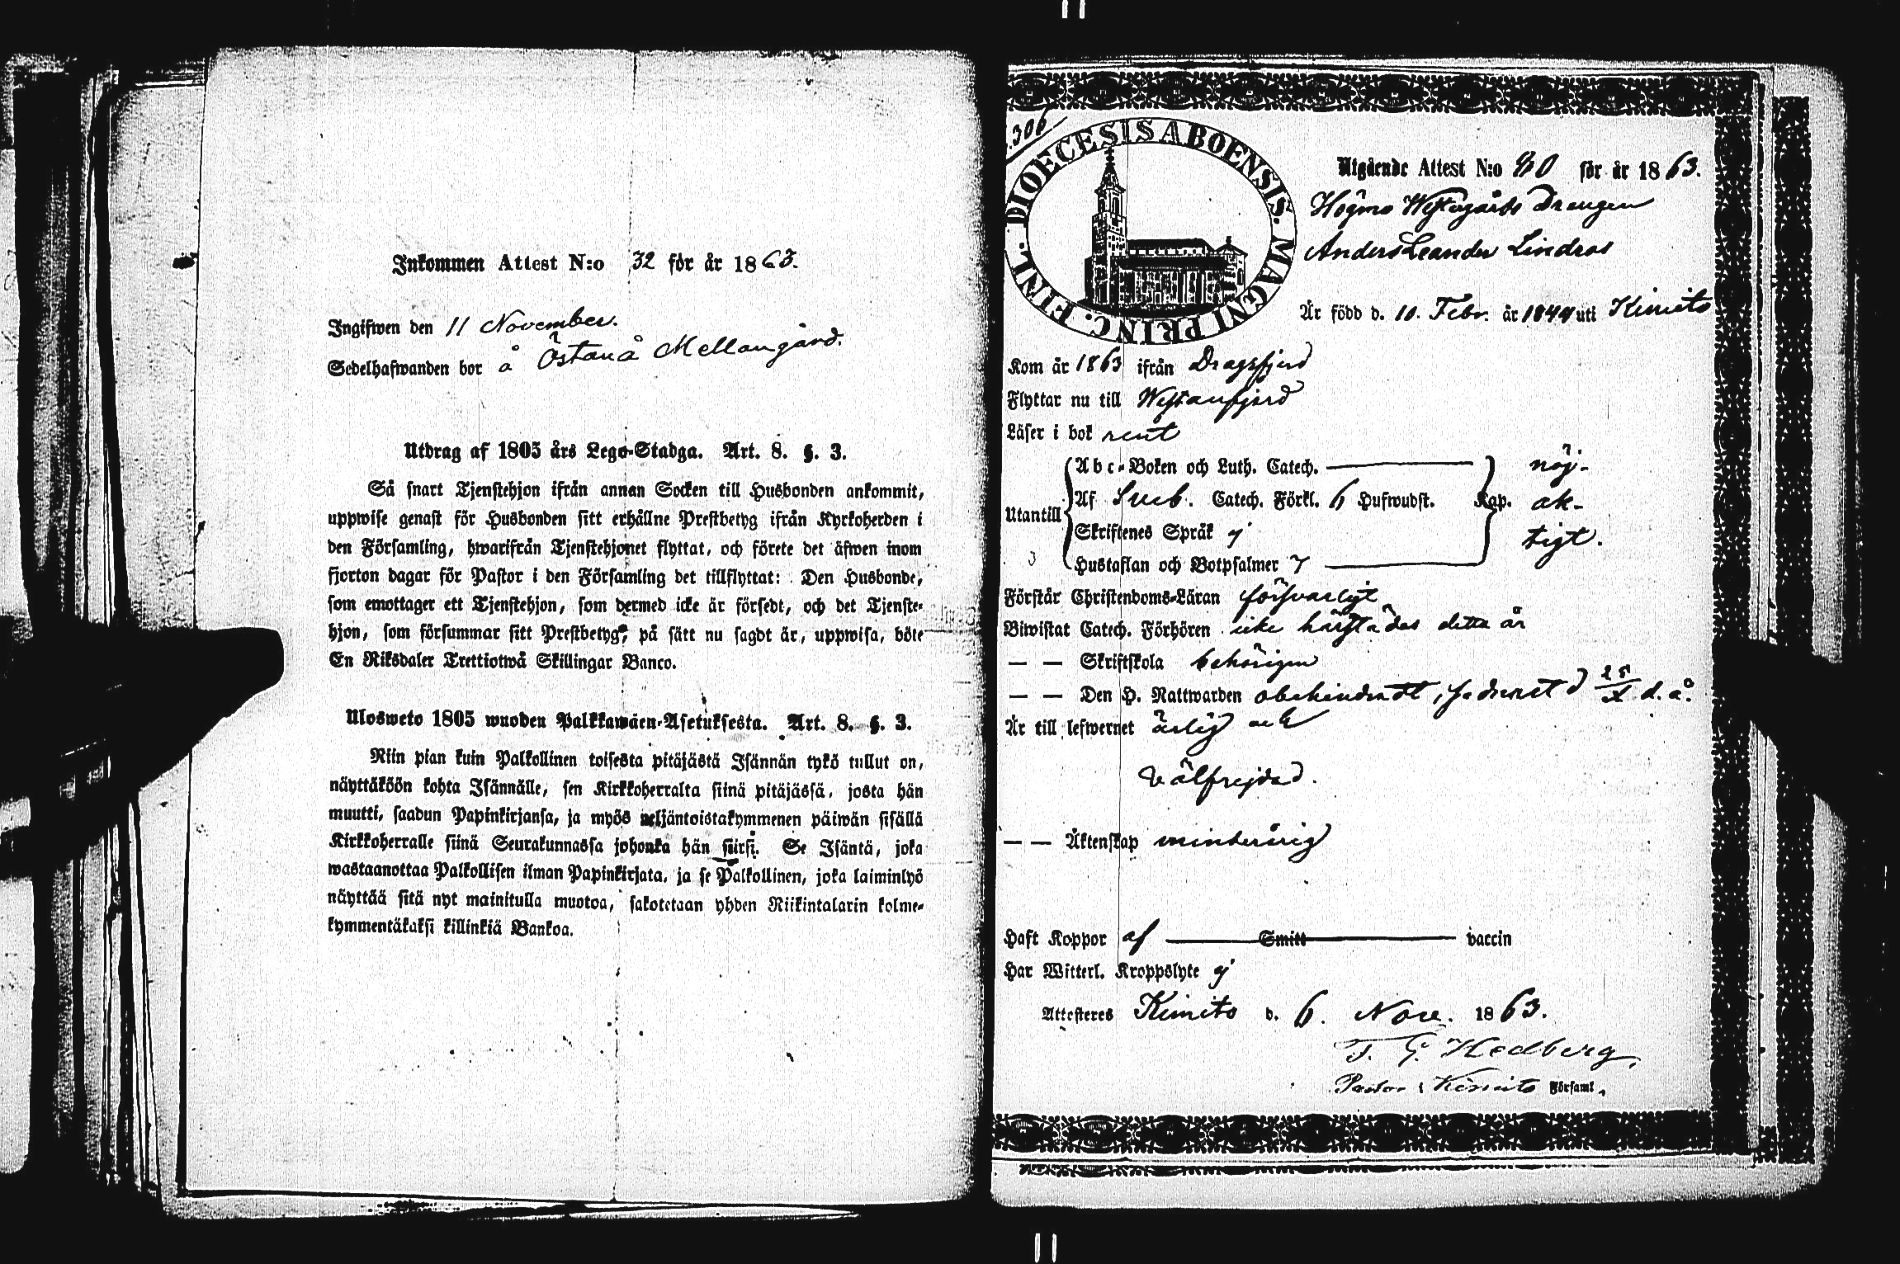 Inkommen Attest N:o 32 för år 1863.
Ingifwen den 11 November.
Sedelhafwanden bor å Östanå Mellangård.
Utdrag af 1805 års Lego-Stadga. Art. 8. §. 3.
Så snart Tjenstehjon ifrån annan Socken till Husbonden ankommit,
uppwise genast för Husbonden sitt erhållne Prestbetyg ifrån Kyrkoherden i
den Församling, hwarifrån Tjenstehjonet flyttat, och förete det äfwen inom
fjorton dagar för Pastor i den Församling det tillflyttat: Den Husbonde,
som emottager ett Tjenstehjon, som dermed icke är försedt, och det Tjenste-
hjon, som försummar sitt Prestbetyg, på sätt nu sagdt är, uppwisa, böte
En Riksdaler Trettiotwå Skillingar Banco.
Ulosweto 1805 wuoden Palkkawäen-Asetuksesta. Art. 8. §. 3.
Niin pian kuin Palkollinen toisesta pitäjästä Isännän tykö tullut on,
näyttäköön kohta Isännälle, sen Kirkkoherralta siinä pitäjässä, josta hän
muutti, saadun Papinkirjansa, ja myös neljäntoistakymmenen päiwän sisällä
Kirkkoherralle siinä Seurakunnassa johonka hän siirsi. Se Isäntä, joka
wastaanottaa Palkollisen ilman Papinkirjata, ja se Palkollinen, joka laiminlyö
näyttää sitä nyt mainitulla muotoa, sakotetaan yhden Riikintalarin kolme-
kymmentäkaksi killinkiä Bankoa.
306
FINL. DIOECESIS ABOENSIS. MAGNI PRINC.
Utgående Attest N:o 80 för år 1863.
Högmo Westergårds Drengen
Anders Leander Lindros
Är född d. 10. Febr. år 1844 uti Kimito
Kom år 1863 ifrån Dragsfjerd
Flyttar nu till Westanfjerd
Läser i bok rent
Utantill
Abc-Boken och Luth. Catech. nöj-
Af Sveb. Catech. Förkl. 6 Hufwudst. Kap. ak-
Skriftenes Språk ej tigt.
Hustaflan och Botpsalmer 7
Förstår Christendoms-Läran försvarligt
Biwistat Catech. Förhören icke härstädes detta år
— — Skriftskola behörigen
— — Den H. Nattwarden obehindradt, sednast d 25/X d. å.
Är till lefwernet ärlig och
välfrejdad.
— — Äktenskap minderårig
Haft Koppor af Smitt vaccin
Har Witterl. Kroppslyte ej
Attesteres Kimito d. 6. Nov. 1863.
F. G. Hedberg,
Pastor i Kimito Församl.